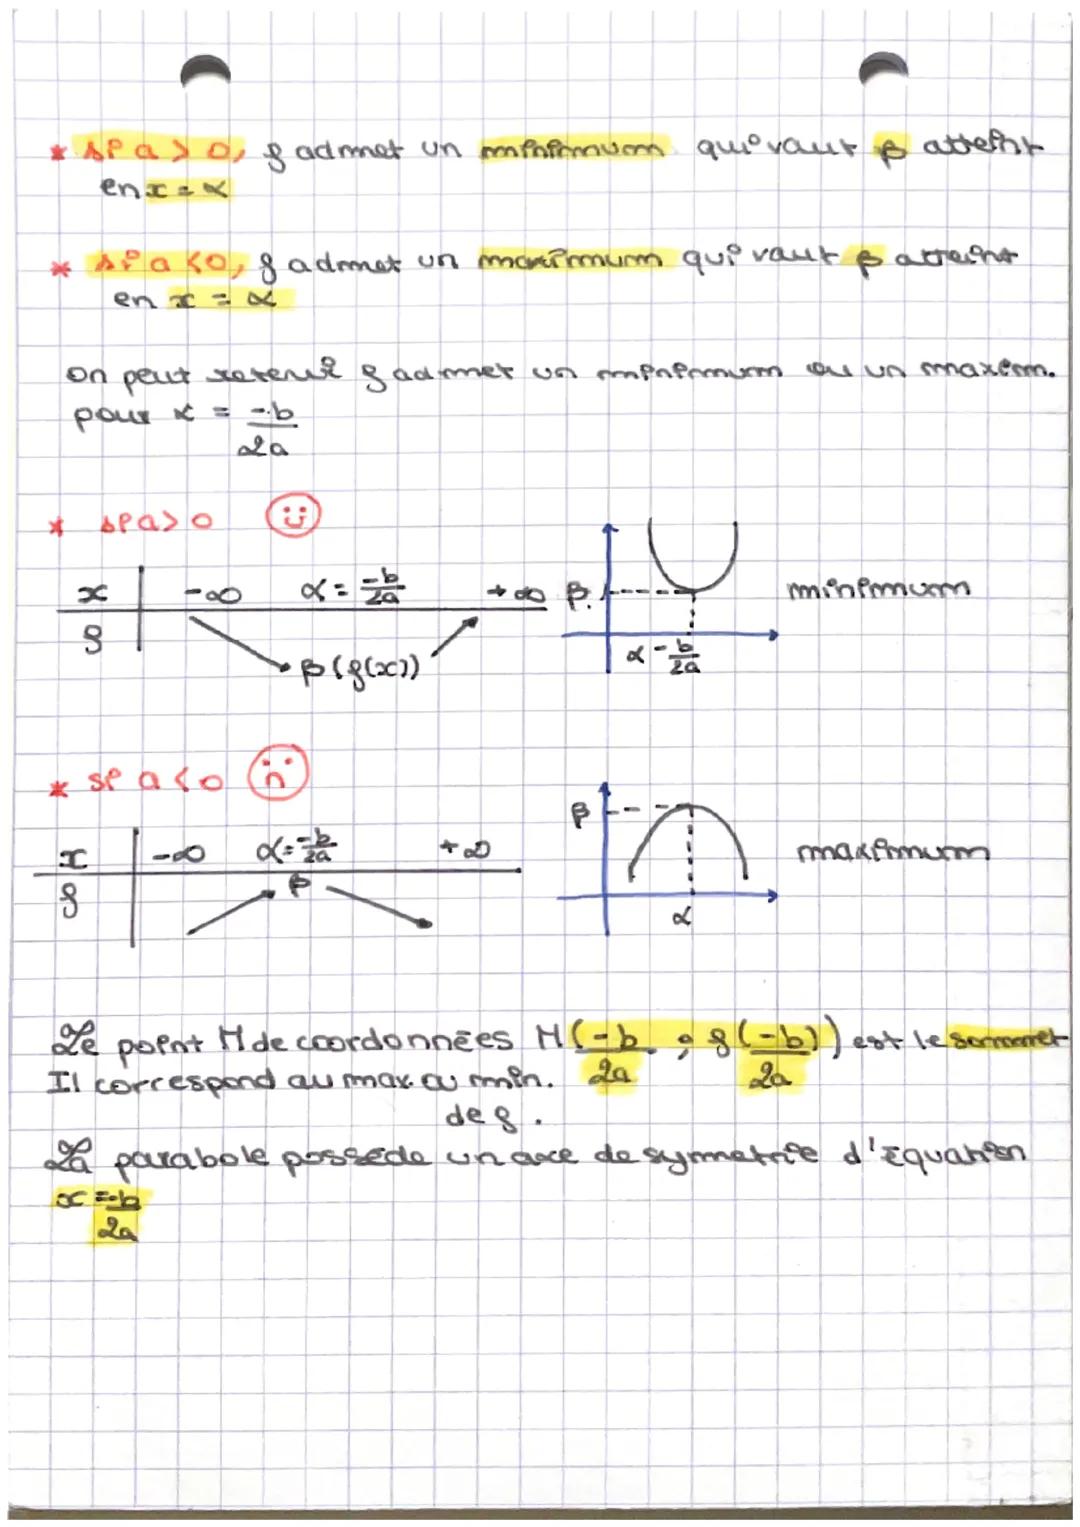 * si a > 0, f admet un minimum qui vaut β atteint
en x = α
* si a < 0, f admet un maximum qui vaut β atteint
en x = α
On peut retenir f admet un minimum ou un maxim.
pour x = -b/2a
* si a > 0
x -∞ α = -b/2a +∞
f
β (f(x))
β
α - b/2a
minimum
* si a < 0
x -∞ α = -b/2a +∞
f β
β
α
maximum
Le point M de coordonnées M(-b/2a ; f(-b/2a)) est le sommet
Il correspond au max. ou min.
de f.
La parabole possède un axe de symetrie d'équation
x = -b/2a